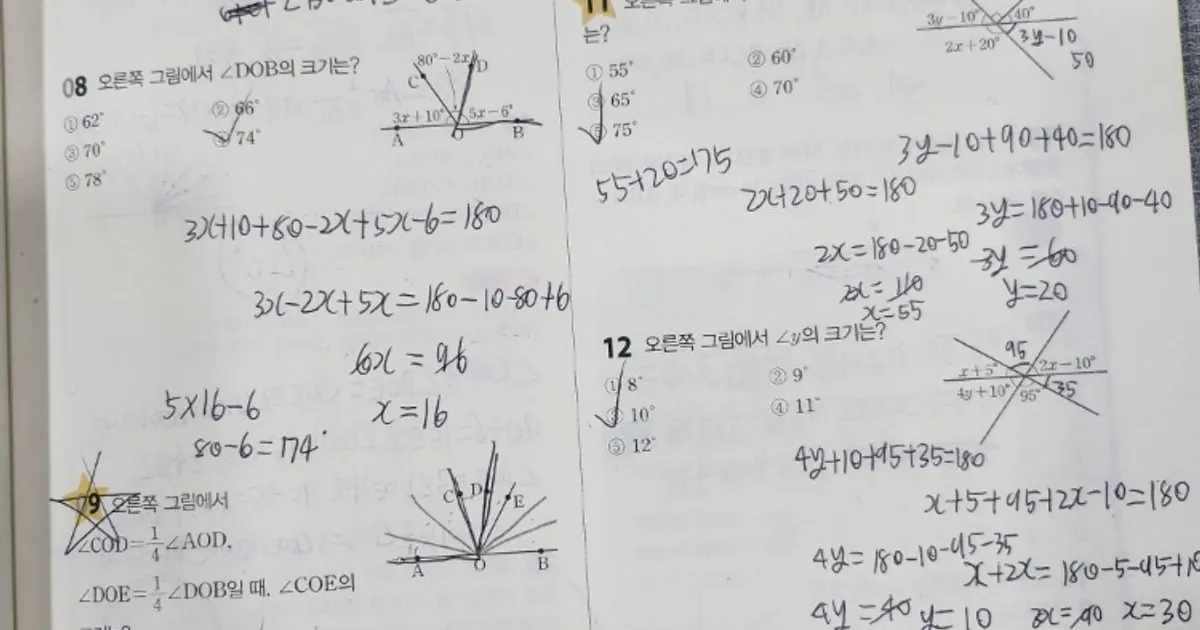 08 오른쪽 그림에서 ∠DOB의 크기는?
① 62° ② 66°
③ 70° ④ 74°
⑤ 78°
80°-2x
C D
3x+10° 5x-6°
A O B
3x+10+80-2x+5x-6=180
3x-2x+5x=180-10-80+6
6x = 96
x=16
5x16-6
80-6=174
09 오른쪽 그림에서
∠COD=1/4∠AOD,
∠DOE=1/4∠DOB일 때, ∠COE의
C D E
A O B
11
는?
① 55° ② 60°
③ 65° ④ 70°
⑤ 75°
3y-10° 40°
2x+20° 3y-10
50
3y-10+90+40=180
55+20=175
2x+20+50=180
3y=180+10-90-40
2x=180-20-50
3y=60
2x=110
y=20
x=55
12 오른쪽 그림에서 ∠y의 크기는?
① 8° ② 9°
③ 10° ④ 11°
⑤ 12°
95
x+5° 2x-10°
4y+10° 95° 35
4y+10+95+35=180
x+5+95+2x-10=180
4y=180-10-95-35
x+2x=180-5-95+10
4y=40 y=10
3x=90 x=30